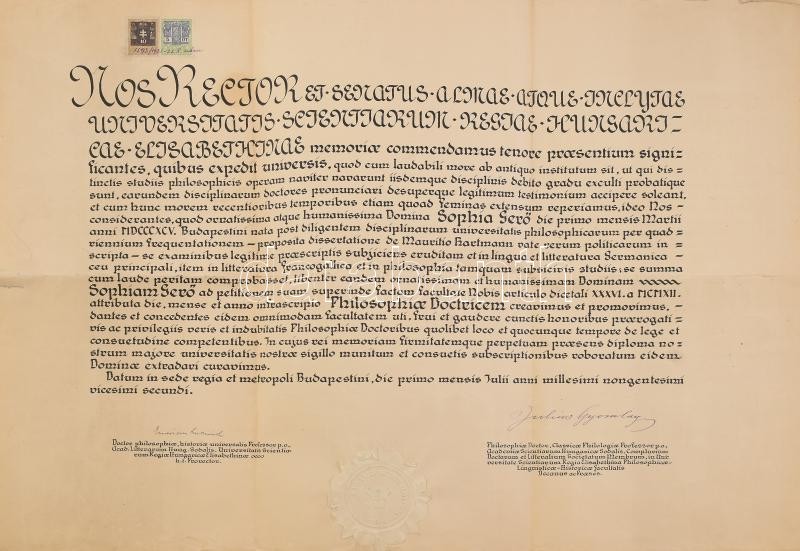 NOS RECTOR ET · SENATUS · ALMAE · ATQUE · INCLYTAE
UNIVERSITATIS · SCIENTIARUM · REGIAE · HUNGARI-
CAE · ELISABETHINAE memoriæ commendamus tenore præsentium signi-
ficantes, quibus expedit universis, quod cum laudabili more ab antiquo institutum sit, ut qui dis-
tinctis studiis philosophicis operam naviter navarunt iisdemque disciplinis debito gradu exculti probatique
sunt, earundem disciplinarum doctores pronunciari desuperque legitimum testimonium accipere soleant,
et cum hunc morem recentioribus temporibus etiam quoad feminas extensum reperiamus, ideo Nos -
considerantes, quod ornatissima atque humanissima Domina Sophia Gerő die primo mensis Martii
anni MDCCCXCV. Budapestini nata post diligentem disciplinarum universitatis philosophicarum per quad-
riennium frequentationem - proposita dissertatione de Mauritio Hartmann vate rerum politicarum in-
scripta - se examinibus legitime præscriptis subjiciens eruditam et in lingua et litteratura Germanica -
ceu principali, item in litteratura francogallica et in philosophia tamquam subsidiis studiis: se summa
cum laude peritam comprobasset, libenter eandem ornatissimam et humanissimam Dominam
Sophiam Gerő ad petitionem suam superinde factam facultate Nobis articulo dietali XXXVI. a MCMXII.
attributa die, mense et anno infrascripto Philosophiæ Doctricem creavimus et promovimus, -
dantes et concedentes eidem omnimodam facultatem uti, frui et gaudere cunctis honoribus prærogati-
vis ac privilegiis veris et indubitatis Philosophiæ Doctoribus quolibet loco et quocunque tempore de lege et
consuetudine competentibus. In cujus rei memoriam firmitatemque perpetuam præsens diploma no-
strum majore universitatis nostræ sigillo munitum et consuetis subscriptionibus roboratum eidem
Dominæ extradari curavimus.
Datum in sede regia et metropoli Budapestini, die primo mensis Julii anni millesimi nongentesimi
vicesimi secundi.
Doctor philosophiæ, historiæ universalis Professor p.o.,
Acad. Litterarum Hung. Sodalis, Universitatis Scientio-
rum Regiæ Hungaricæ Elisabethinæ
h.t. Prorector.
Julius Gyomlay
Philosophiæ Doctor, Classicæ Philologiæ Professor p.o.,
Academiæ Scientiarum Hungaricæ Sodalis, Complurium
Doctorum et Litteralium Societatum Membrum, in Uni-
versitate Scientiarum Regia Elisabethina Philosophicæ-
Linguisticæ-Historicæ Facultatis
Decanus